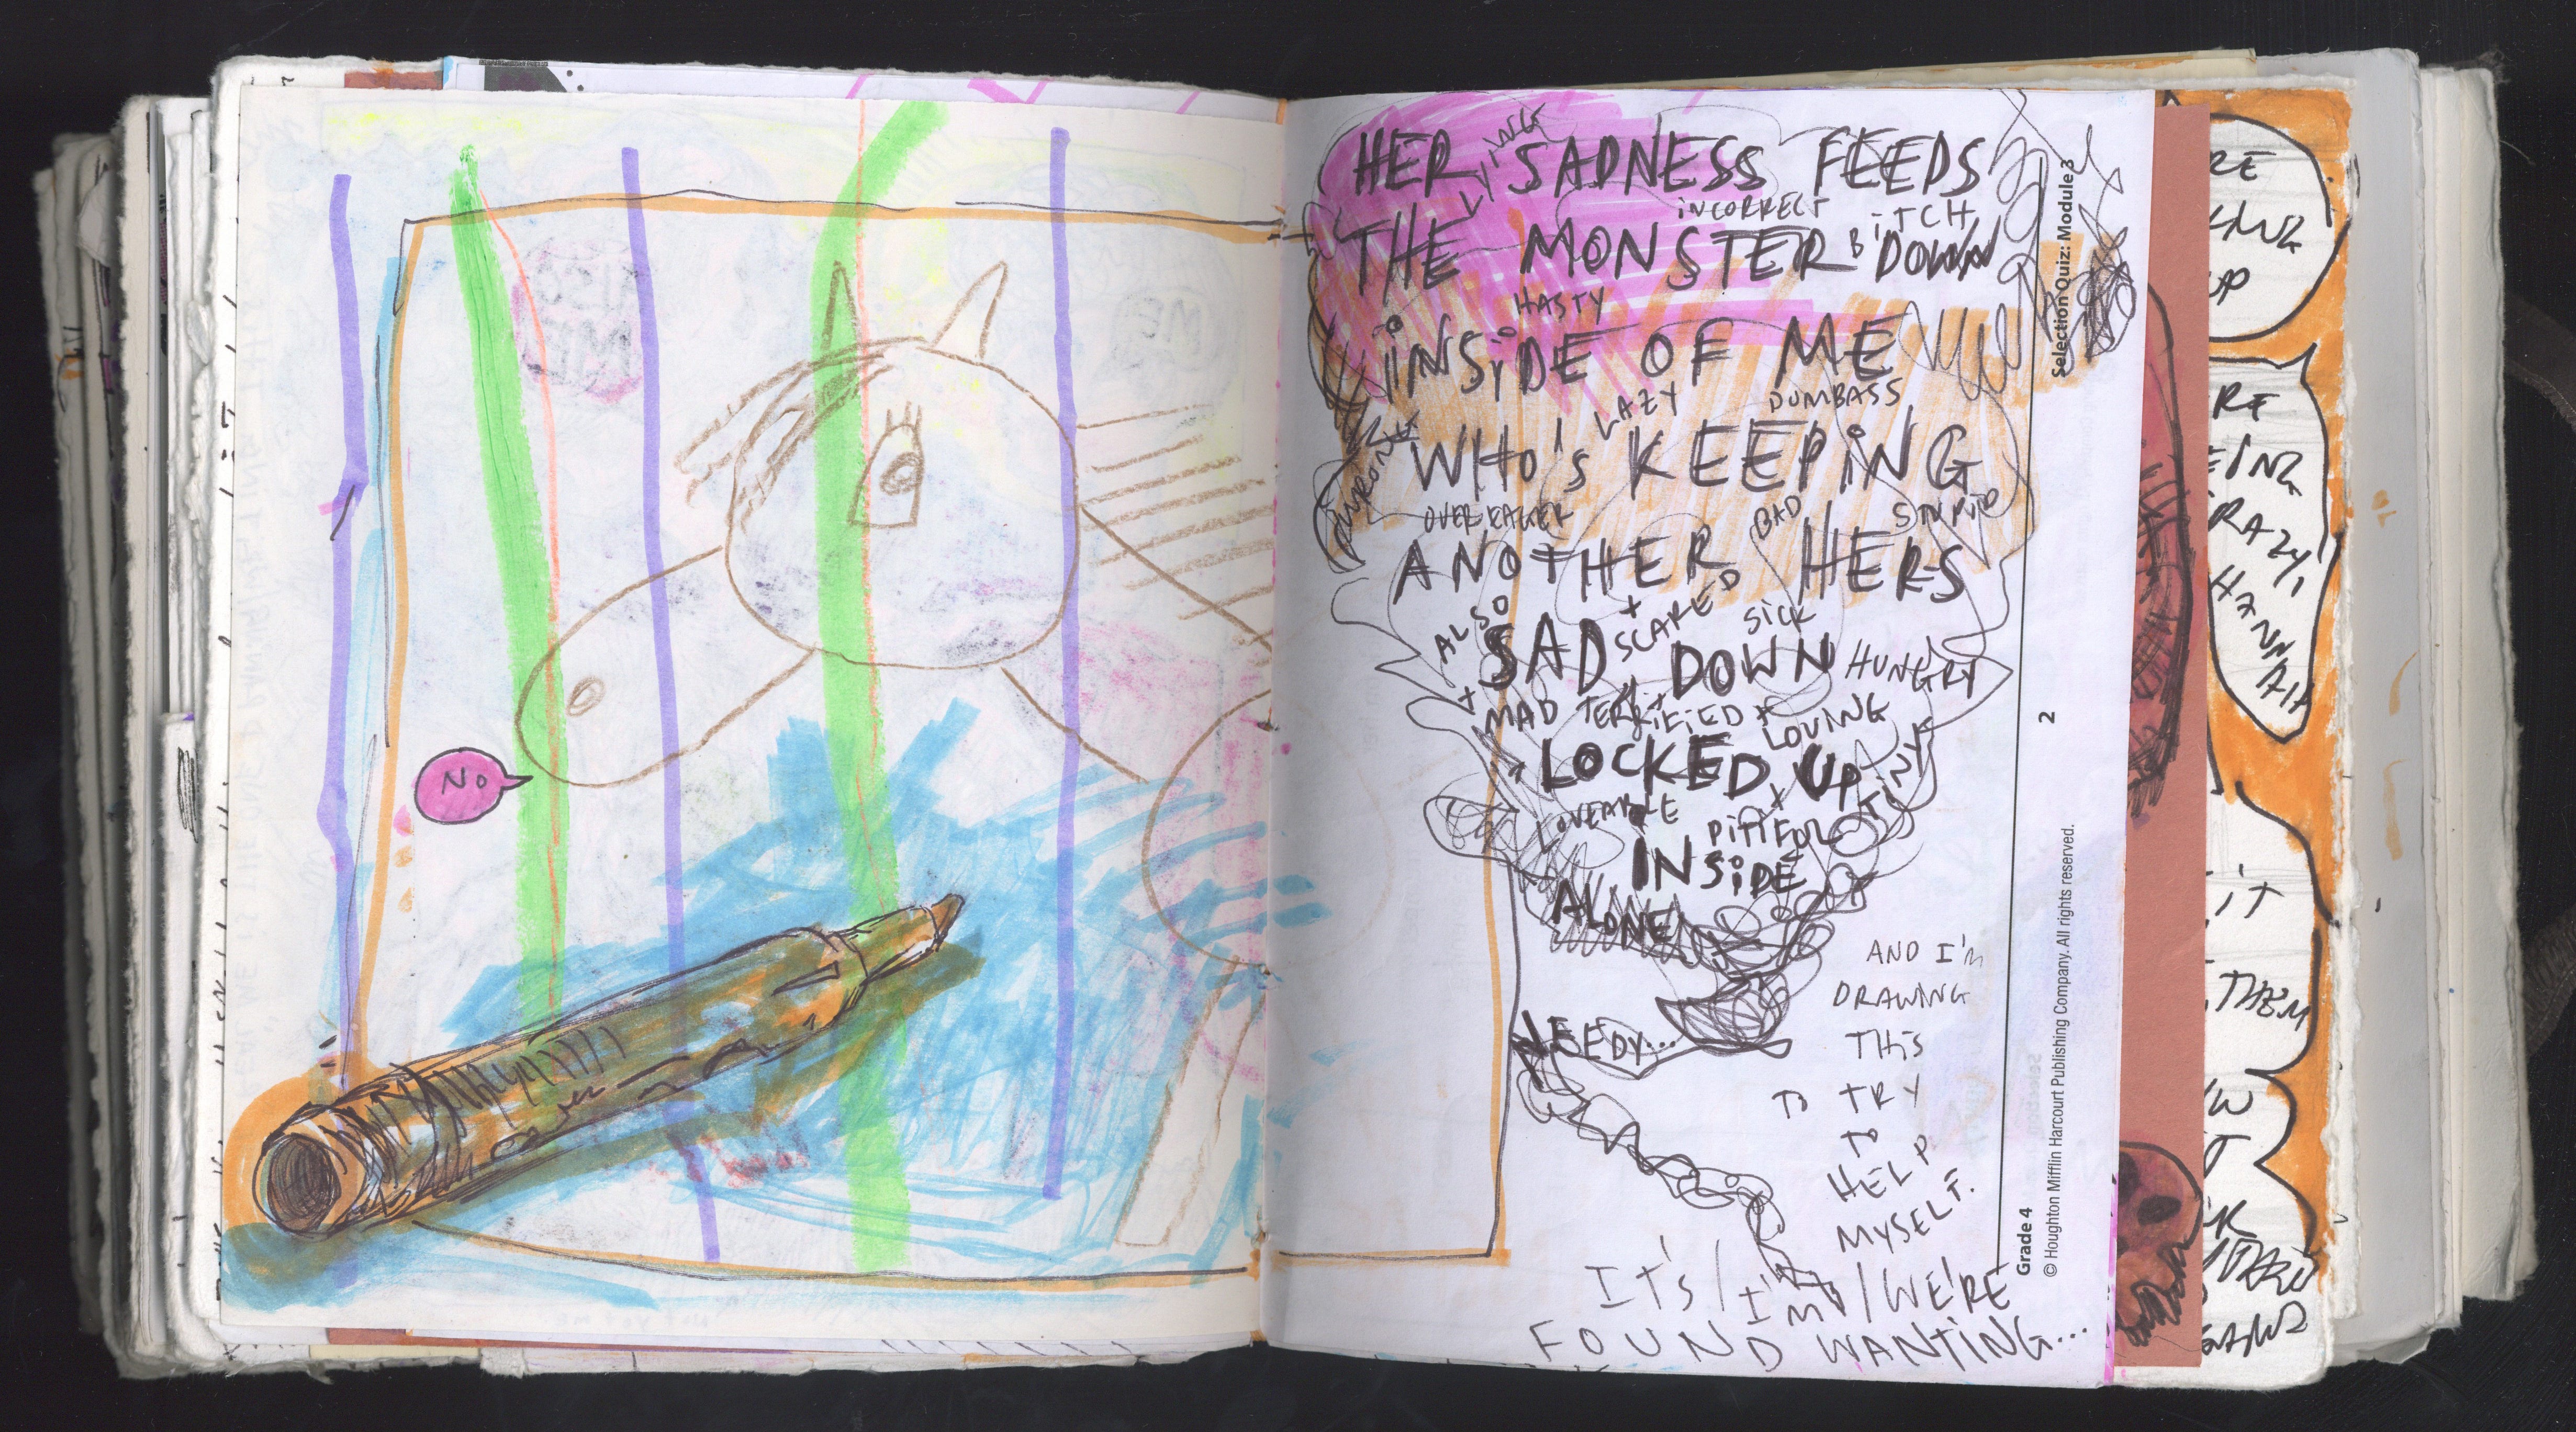 NO
HER SADNESS FEEDS
LYING
INCORRECT
BITCH
THE MONSTER DOWN
HASTY
INSIDE OF ME
LAZY
DUMBASS
WRONG
WHO'S KEEPING
OVEREATER
BAD
STUPID
ANOTHER HERS
ALSO
+ SCARED
SICK
SAD DOWN HUNGRY
+ MAD TERRIFIED +
LOVING
LOCKED UP
TINY
LOVEABLE
+ PITIFUL
INSIDE
ALONE
NEEDY...
AND I'M
DRAWING
THIS
TO TRY
TO
HELP
MYSELF.
IT'S / I'M / WE'RE
FOUND WANTING...
Selection Quiz: Module 3
2
Grade 4
© Houghton Mifflin Harcourt Publishing Company. All rights reserved.
RE
UP
RE
HANNAH
IT
THEM